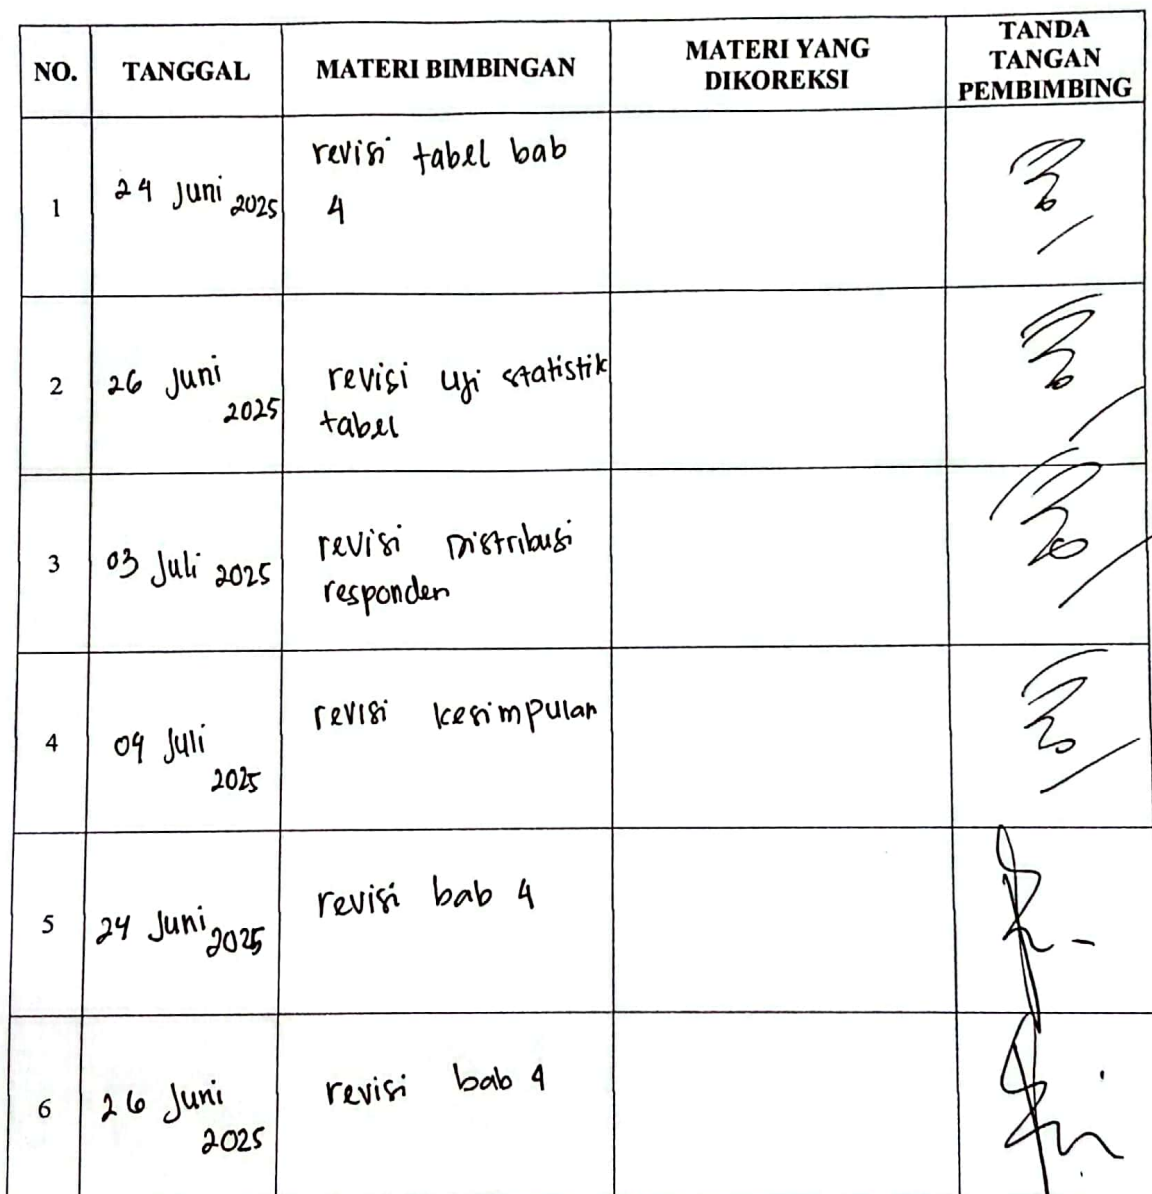 NO.
TANGGAL
MATERI BIMBINGAN
MATERI YANG
DIKOREKSI
TANDA
TANGAN
PEMBIMBING
1
24 Juni 2025
revisi tabel bab
4
2
26 Juni
2025
revisi uji statistik
tabel
3
03 Juli 2025
revisi Distribusi
responden
4
09 Juli
2025
revisi kesimpulan
5
24 Juni 2025
revisi bab 4
6
26 Juni
2025
revisi bab 4